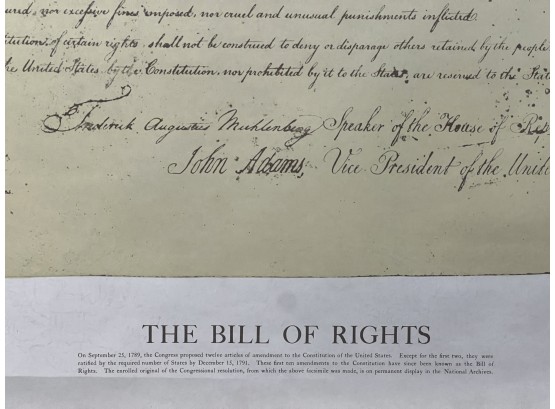 ured, nor excessive fines imposed, nor cruel and unusual punishments inflicted.
titution, of certain rights, shall not be construed to deny or disparage others retained by the people
he United States by the Constitution, nor prohibited by it to the States, are reserved to the Stat
Frederick Augustus Muhlenberg Speaker of the House of Rep
John Adams, Vice President of the Unite
THE BILL OF RIGHTS
On September 25, 1789, the Congress proposed twelve articles of amendment to the Constitution of the United States. Except for the first two, they were
ratified by the required number of States by December 15, 1791. These first ten amendments to the Constitution have since been known as the Bill of
Rights. The enrolled original of the Congressional resolution, from which the above facsimile was made, is on permanent display in the National Archives.